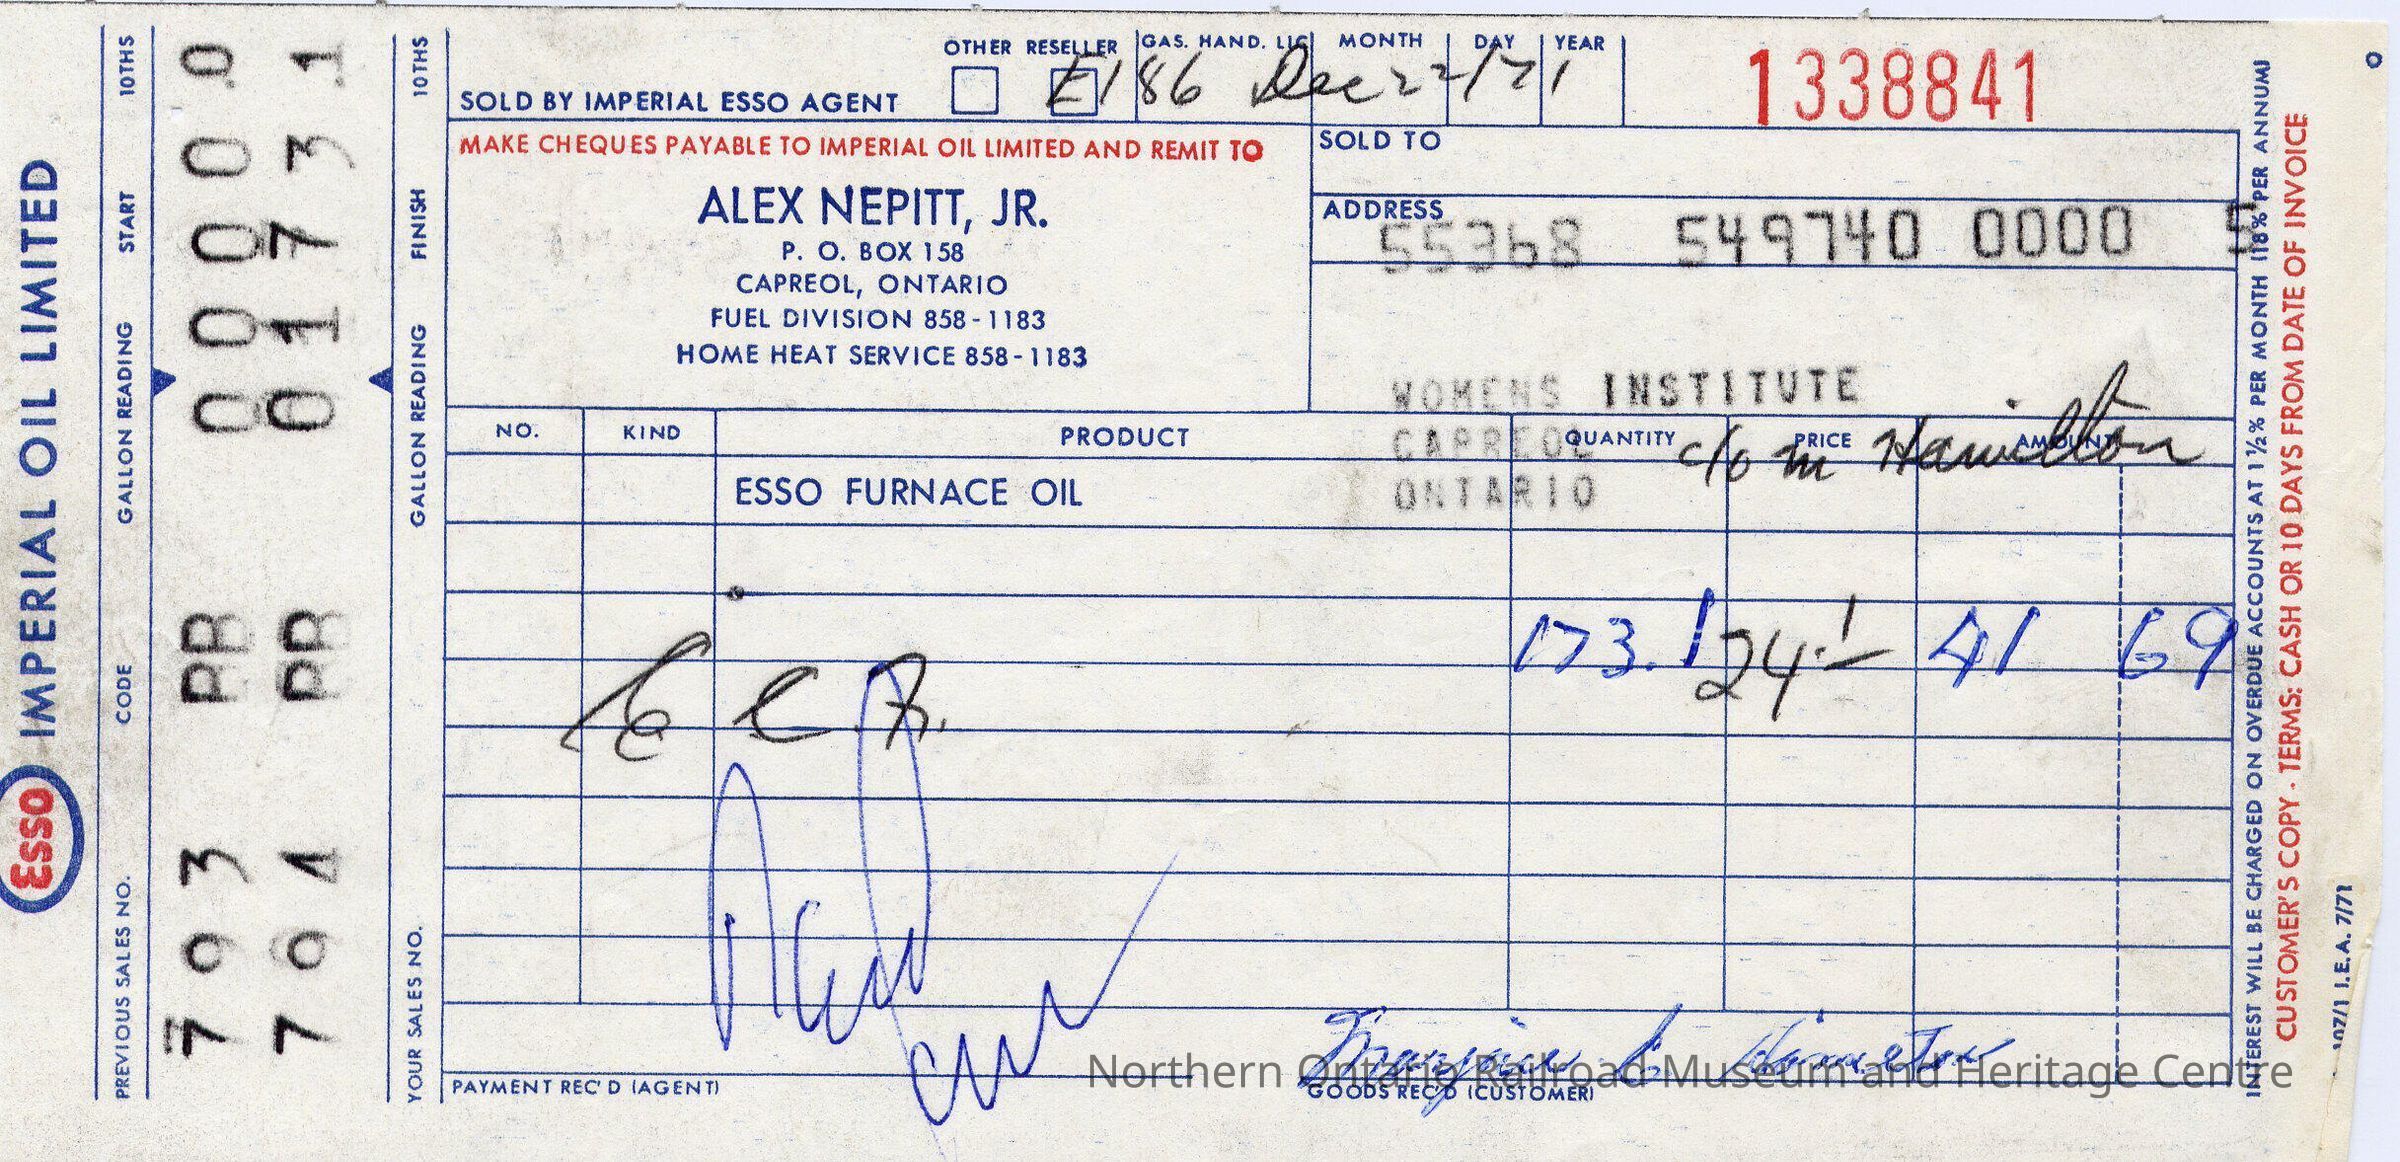 IMPERIAL OIL LIMITED
ESSO
PREVIOUS SALES NO. CODE GALLON READING START 10THS
793 PR 0000.0
794 PR 0173 1
YOUR SALES NO. GALLON READING FINISH 10THS
OTHER RESELLER GAS. HAND. LIC MONTH DAY YEAR
SOLD BY IMPERIAL ESSO AGENT E186 Dec 22/71 1338841
MAKE CHEQUES PAYABLE TO IMPERIAL OIL LIMITED AND REMIT TO
ALEX NEPITT, JR.
P. O. BOX 158
CAPREOL, ONTARIO
FUEL DIVISION 858-1183
HOME HEAT SERVICE 858-1183
SOLD TO
ADDRESS
55368 549740 0000 5
WOMENS INSTITUTE
CAPREOL
ONTARIO
c/o M Hamilton
NO. KIND PRODUCT QUANTITY PRICE AMOUNT
ESSO FURNACE OIL
173.1 24.1 41 69
PAYMENT REC'D (AGENT)
GOODS REC'D (CUSTOMER)
INTEREST WILL BE CHARGED ON OVERDUE ACCOUNTS AT 1½% PER MONTH (18% PER ANNUM)
CUSTOMER'S COPY - TERMS: CASH OR 10 DAYS FROM DATE OF INVOICE
I.E.A. 7/71
Northern Ontario Railroad Museum and Heritage Centre